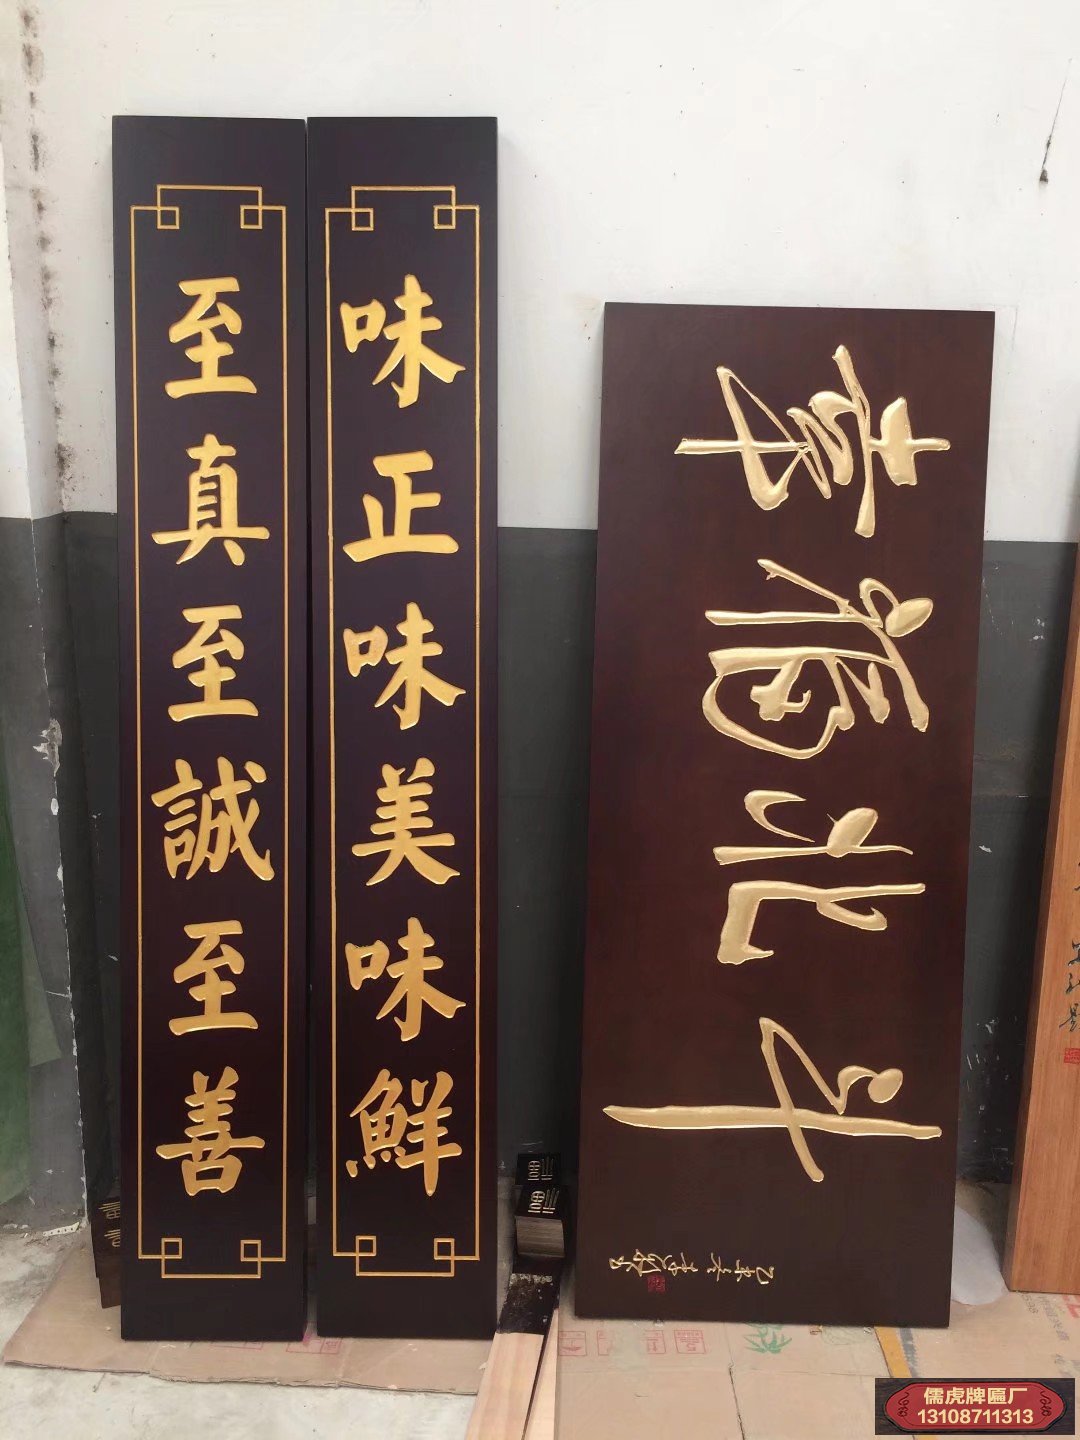 味正味美味鮮
至真至誠至善
北斗
儒虎牌匾厂
13108711313